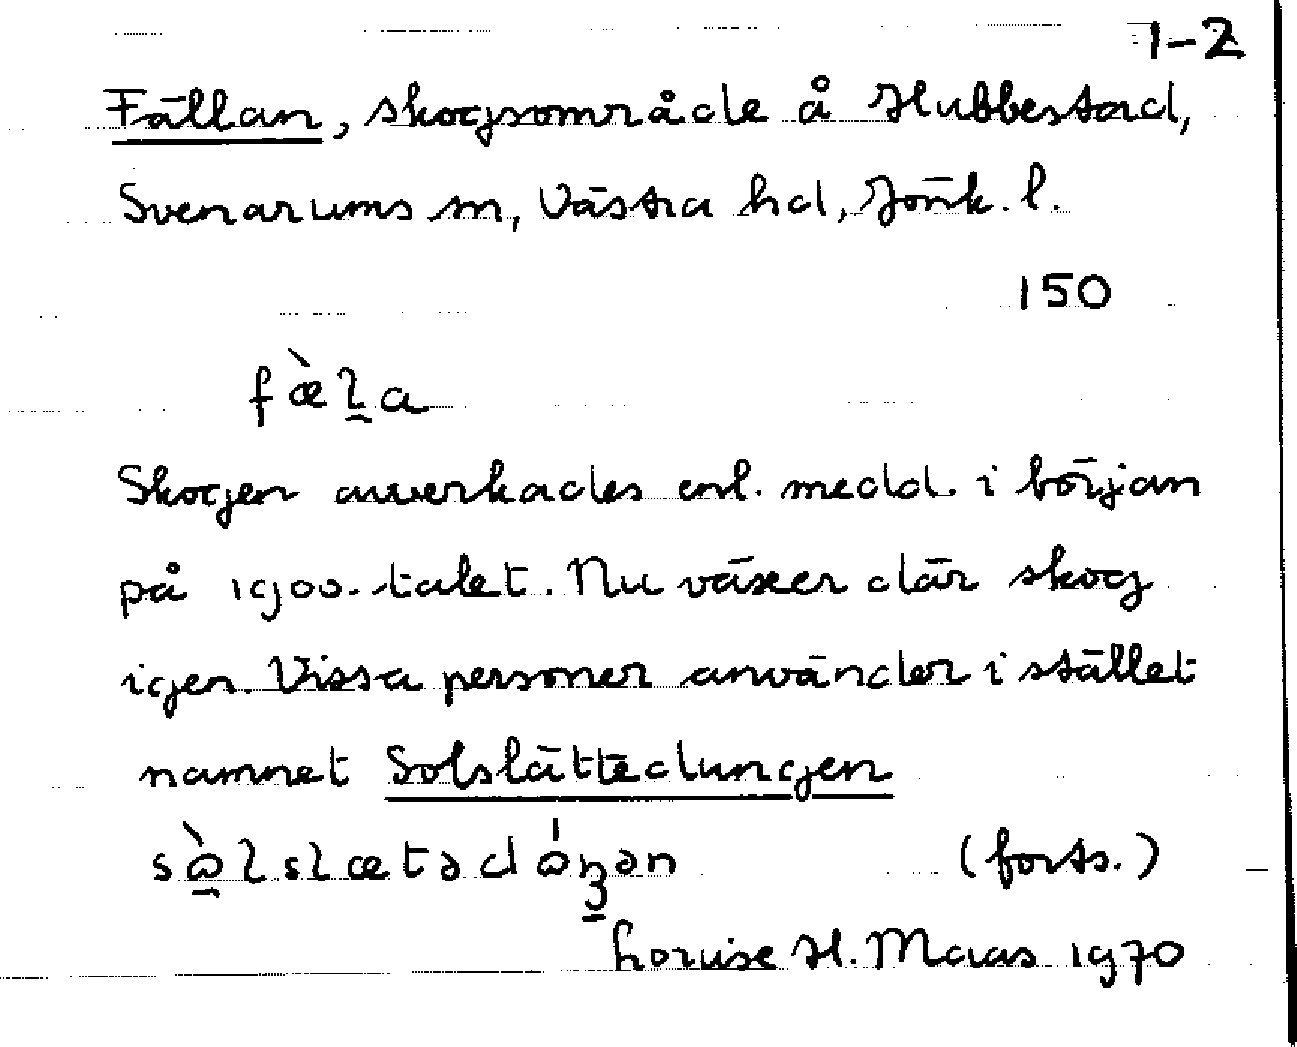 1-2
Fällan, skogsområde å Hubbestad,
Svenarums sn, Västra hd, Jönk. l.
150
fæ̀l̠a
Skogen avverkades enl. medd. i början
på 1900-talet. Nu växer där skog
igen. Vissa personer använder i stället
namnet Solslättedungen
(forts.)
Lovise H. Maas 1970